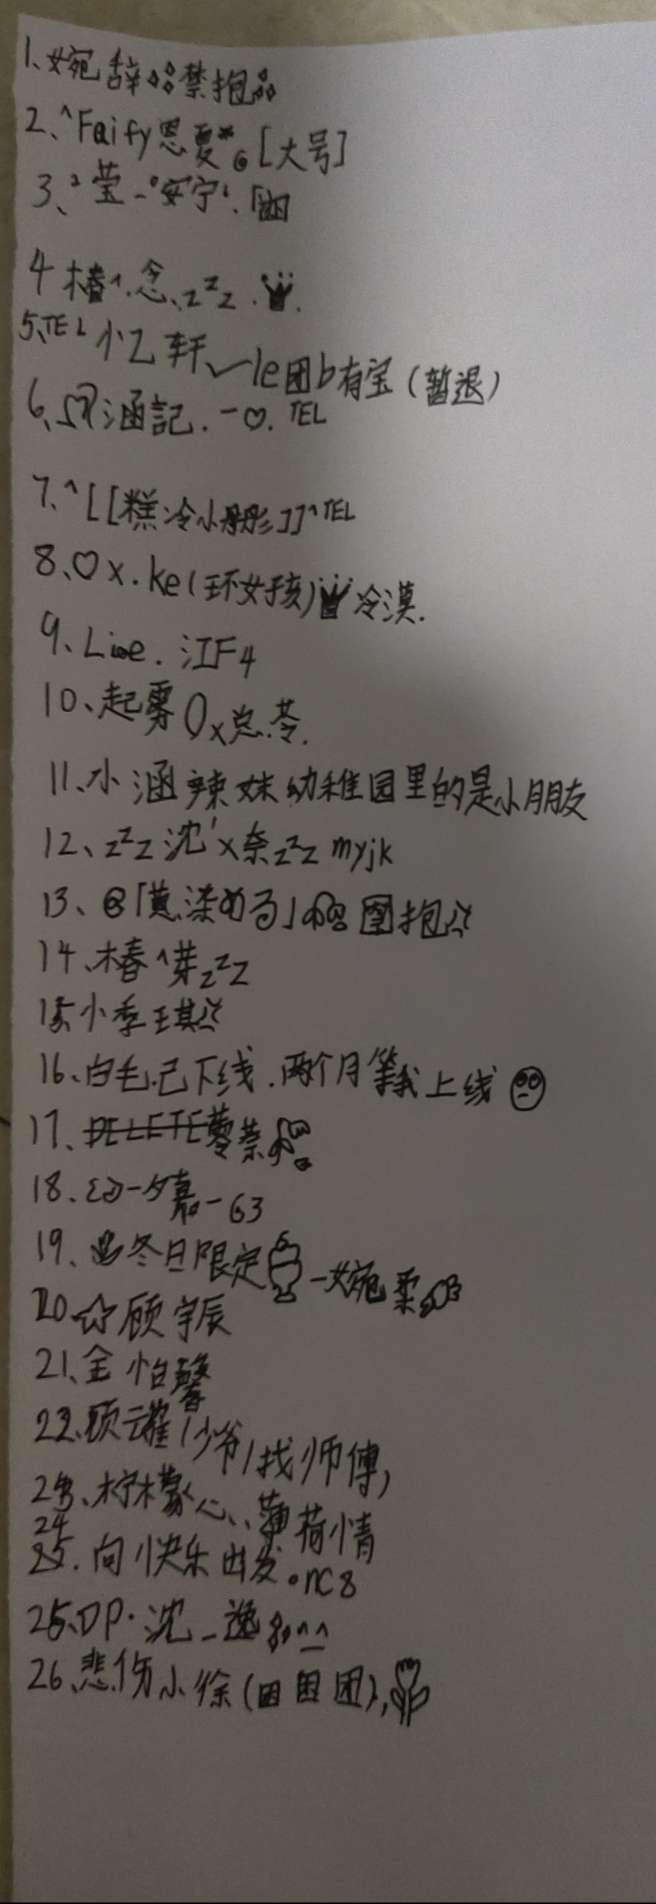 1、婉辞禁抱
2、^Faify恩夏*。[大号]
3、莹-安宁
4 椿^.念、zzz.
5、TEL 小乙轩 le团b有宝(暂退)
6、涵記.一♡.TEL
7、^[[糕冷小彤]]^TEL
8、♡x.ke(环女孩)冷漠.
9、Lioe.江F4
10、起雾 0x总.苓.
11、小涵辣妹幼稚园里的是小朋友
12、zzz沈'x奈zzz myjk
13、「黄染める」抱
14、椿^芽zzz
15、小季琪
16、白毛己下线.两个月等我上线
17、
18、一夕嘉-63
19、冬日限定一婉柔
20、☆顾宇辰
21、金怡馨
22、顾/少爷/找师傅,
23、柠檬心、薄荷情
24
25.向快乐出发。nc8
25、DP·沈_逸
26、悲伤小徐(团),